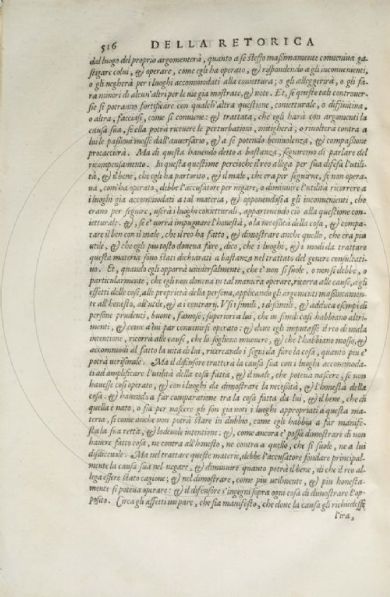 516 DELLA RETORICA
dal luogo del proprio argomenterà, quanto a se stesso massimamente conueniua ga-
stigare colui, & operare, come egli ha operato, & rispondendo a gli inconuenienti,
o gli negherà per i luoghi accommodati alla coniettura; o gli alleggerirà, o gli fa-
ra minori di alcun'altri per le vie gia mostrate, & note. Et, se questo tale controuer-
sie si potranno fortificare con qualch'altra questione, conietturale, o diffinitiua,
o altra, faccasi, come si conuiene: & trattata, che egli harà con argomenti la
causa sua, se ella potrà riceuere le perturbationi, mitigherà; o riuolterà contra a
lui le passioni mosse dall'auuersario, & a se potendo beniuolenza, & compassione
procaccierà. Ma di questa hauendo detto a bastanza, seguiremo di parlare del
ricompensamento. In questa questione percioche il reo allega per sua difesa l'utili-
tà, & il bene, che egli ha partorito, & il male, che era per seguirne, se non opera-
ua, com'ha operato, debbe l'accusatore per negare, o diminuire l'utilità ricorrere a
i luoghi gia accommodati a tal materia, & opponendosi a gli inconuenienti, che
erano per seguire, userà i luoghi conietturali, appartenendo ciò alla questione con-
ietturale, &, se e' vorrà impugnare l'honestà, o la necessità della cosa, & compa-
rare il ben con il male, che il reo ha fatto, & dimostrare anche quello, che era piu
utile, & che egli piu tosto doueua fare, dico, che i luoghi, & i modi da trattare
questa materia sono stati dichiarati a bastanza nel trattato del genere consultati-
uo. Et, quando egli apparrà uniuersalmente, che e' non si suole, o non si debbe, o
particularmente, che egli non doueua in tal maniera operare, ricorra alle cause, agli
effetti delle cose, alle proprietà della persona, applicando gli argomenti massimamen-
te all'honesto, all'utile, & a i contrarij. Usi i simili, i dissimili, & adduca esempi di
persone prudenti, buone, famose, superiori a lui, che in simil casi habbiano altri-
menti, & come a lui par conuenirsi operato: & doue egli imputasse il reo di mala
intentione, ricorra alle cause, che lo sogliono muouere, & che l'habbiano mosso, &
accommodi al fatto la uita di lui, ritirando i segni da fare la cosa, quanto piu e'
potrà uerisimile. Ma il difensore tratterà la causa sua con i luoghi accommoda-
ti ad amplificare l'utilità della cosa fatta, & il male, che poteua nascere, se non
hauesse cosi operato, & con i luoghi da dimostrare la necessità, & l'honestà della
cosa: & hauendo a far comparatione tra la cosa fatta da lui, & il bene, che di
quella è nato, o sia per nascere gli son gia noti i luoghi appropriati a questa ma-
teria, si come anche non potrà stare in dubbio, come egli habbia a far manife-
sta la sua retta, & lodeuole intentione: &, come ancora e' possa dimostrare di non
hauere fatto cosa, ne contra all'honesto, ne contra a quello, che si suole, ne a lui
disdiceuole. Ma nel trattare queste materie, debbe l'accusatore fondare principal-
mente la causa sua nel negare, & diminuire quanto potrà il bene, di che il reo al-
lega essere stato cagione; & nel dimostrare, come piu utilmente, & piu honesta-
mente si poteua operare: & il difensore s'ingegni sopra ogni cosa di dimostrare l'op-
posito. Circa gli affetti mi pare, che sia manifesto, che doue la causa gli richiedesse
l'ira,